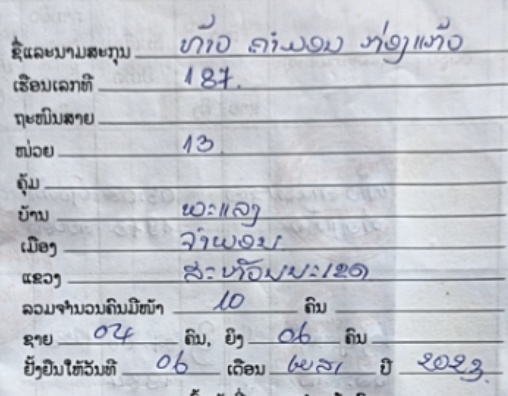 ຊື່ແລະນາມສະກຸນ ທ້າວ ຄຳພອນ
ເຮືອນເລກທີ 187.
ຖະໜົນສາຍ
ໜ່ວຍ 13
ຄຸ້ມ
ບ້ານ ພະແລງ
ເມືອງ ຈຳພອນ
ແຂວງ ສະຫວັນນະເຂດ
ລວມຈຳນວນຄົນມີໜ້າ 10 ຄົນ
ຊາຍ 04 ຄົນ, ຍິງ 06 ຄົນ
ຢັ້ງຢືນໃຫ້ວັນທີ 06 ເດືອນ ເມສາ ປີ 2023